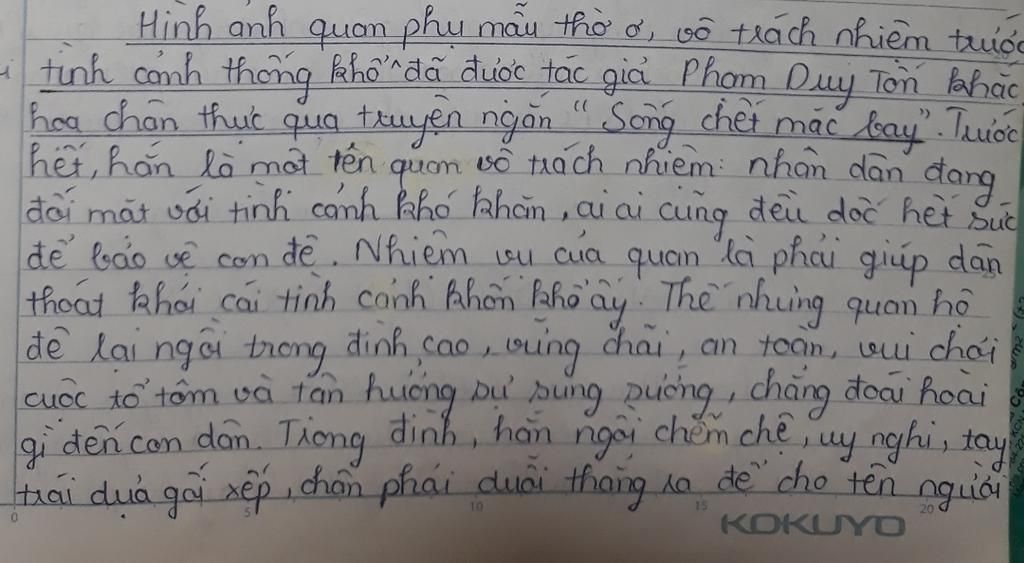 Hình ảnh quan phụ mẫu thờ ơ, vô trách nhiệm trước
tình cảnh thống khổ đã được tác giả Phạm Duy Tốn khắc
họa chân thực qua truyện ngắn "Sống chết mặc bay". Trước
hết, hắn là một tên quan vô trách nhiệm: nhân dân đang
đối mặt với tình cảnh khó khăn, ai ai cũng đều dốc hết sức
để bảo vệ con đê. Nhiệm vụ của quan là phải giúp dân
thoát khỏi cái tình cảnh khốn khổ ấy. Thế nhưng quan hộ
đê lại ngồi trong đình cao, vững chãi, an toàn, vui chơi
cuộc tổ tôm và tận hưởng sự sung sướng, chẳng đoái hoài
gì đến con dân. Trong đình, hắn ngồi chễm chệ, uy nghi, tay
trái dựa gối xếp, chân phải duỗi thẳng ra để cho tên người
0 5 10 15 20
KOKUYO